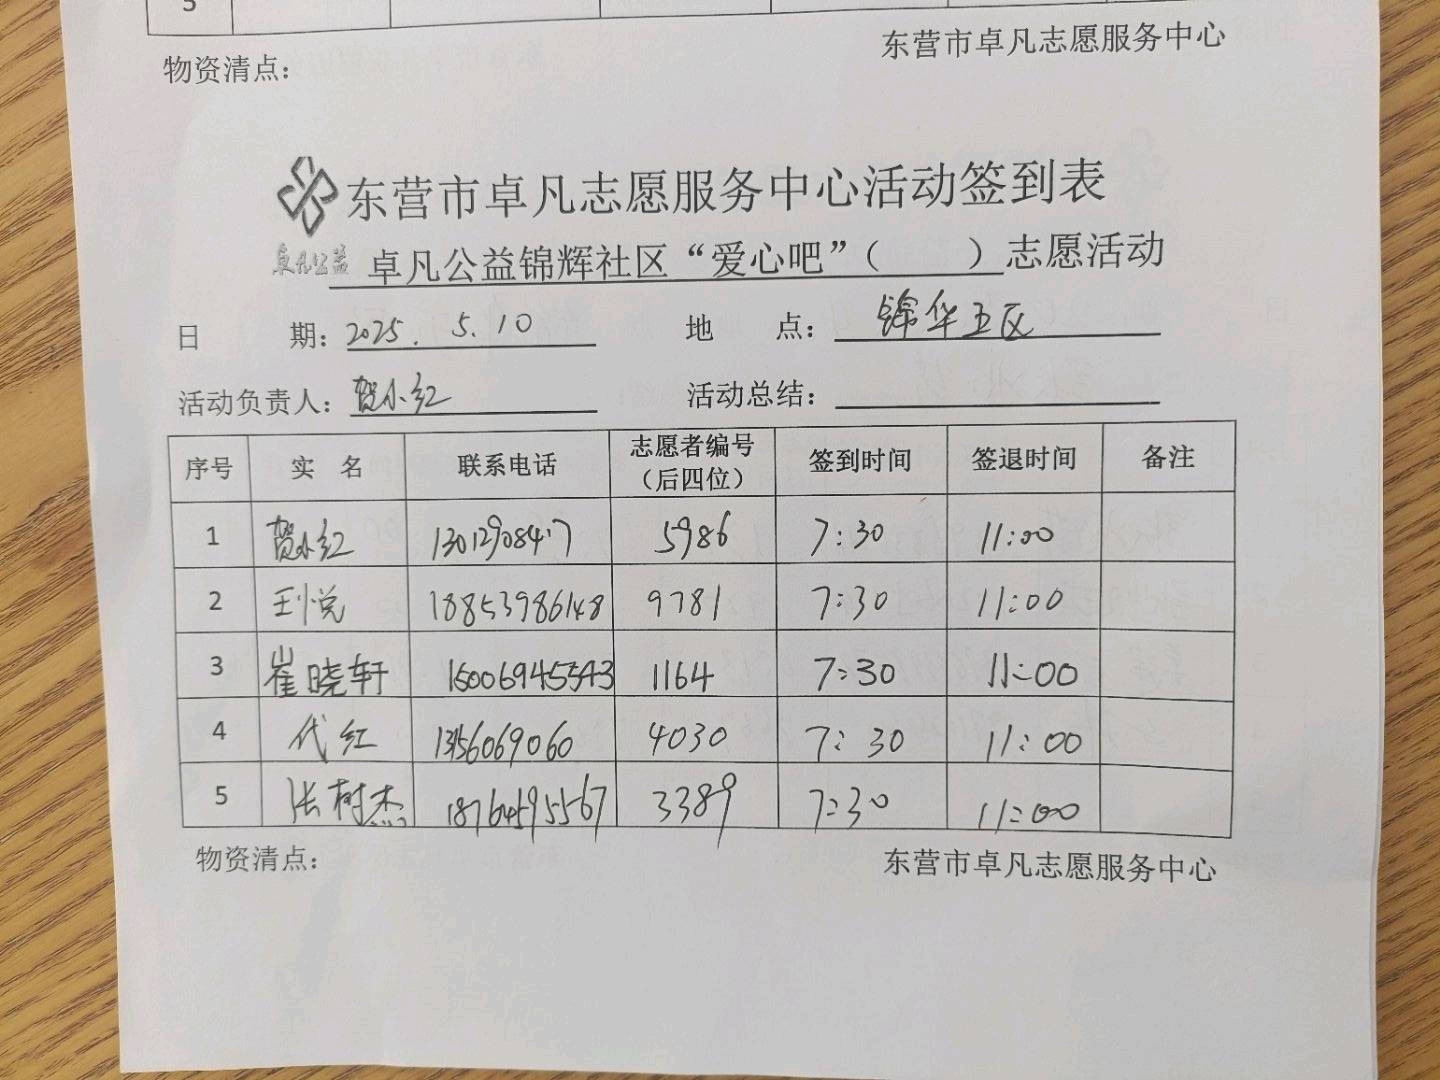 5
物资清点：
东营市卓凡志愿服务中心
东营市卓凡志愿服务中心活动签到表
卓凡公益
卓凡公益锦辉社区“爱心吧”（　　）志愿活动
日　　期：2025.5.10　地　　点：锦华五区
活动负责人：贺小红　活动总结：
序号　实　名　联系电话　志愿者编号（后四位）　签到时间　签退时间　备注
1　贺小红　5986　7:30　11:00
2　王悦　18853986148　9781　7:30　11:00
3　崔晓轩　15006945543　1164　7:30　11:00
4　代红　4030　7:30　11:00
5　张树杰　18764595567　3389　7:30　11:00
物资清点：
东营市卓凡志愿服务中心